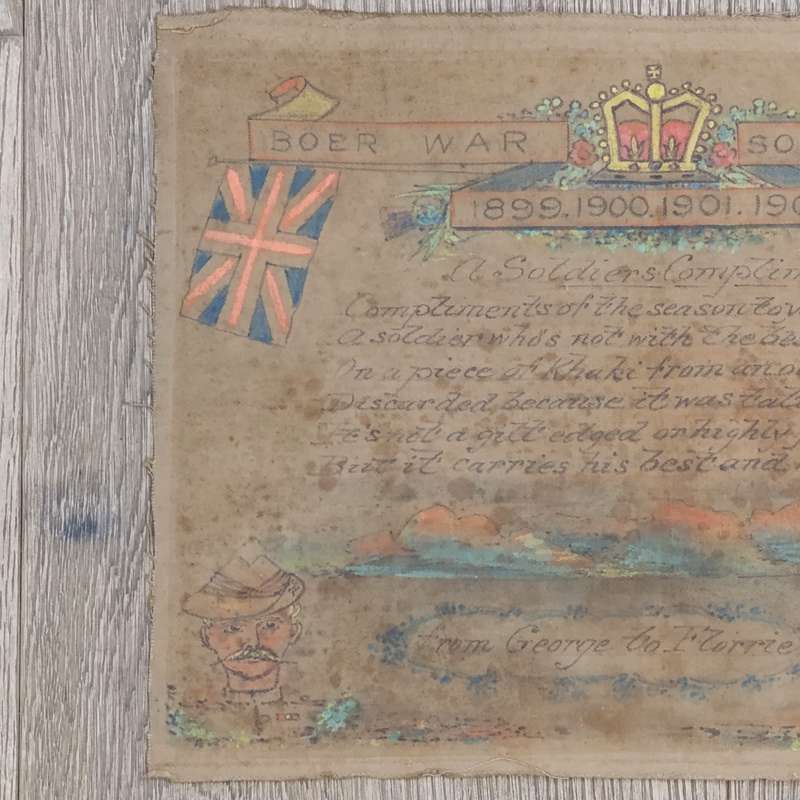 BOER WAR SO
1899.1900.1901.190
A Soldiers Complim
Compliments of the season to
A soldier who's not with the be
On a piece of Khaki from an
Discarded because it was
It's not a gilt edged or highly
But it carries his best and
from George to Florrie